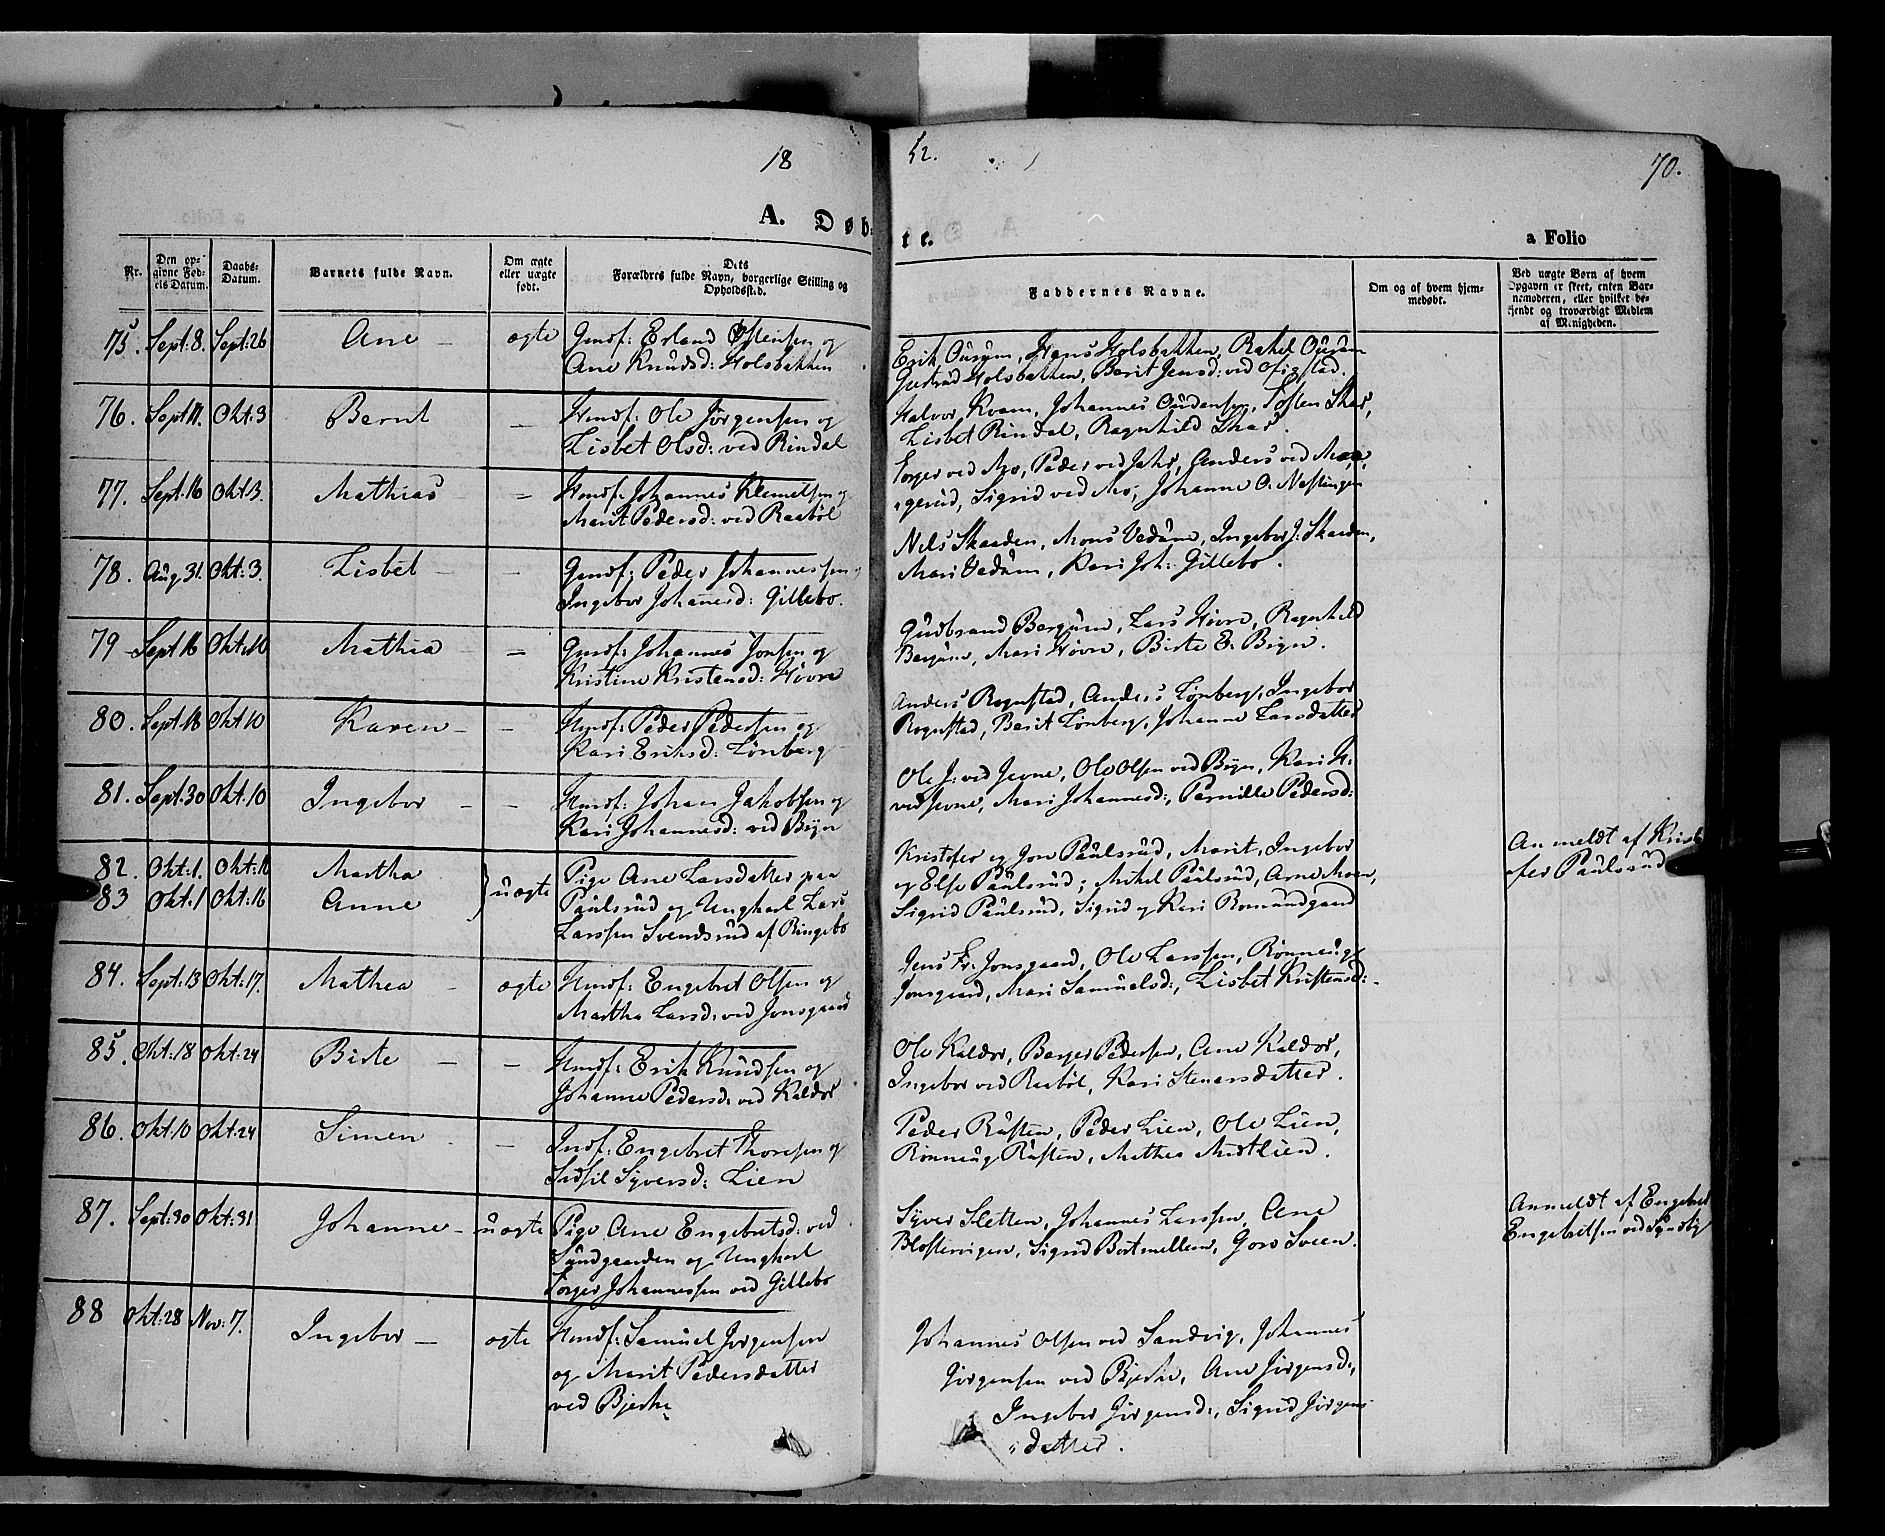 18
52.
70.
A. Døb-
te.
a Folio
Nr.
Den op-
givne Fød-
els Datum.
Daabs-
Datum.
Barnets fulde Navn.
Om ægte
eller uægte
født.
Dets
Forældres fulde Navn, borgerlige Stilling og
Opholdssted.
Faddernes Navne.
Om og af hvem hjem-
medøbt.
Ved uægte Børn af hvem
Opgaven er skeet, enten Bar-
nemoderen, eller hvilket be-
kjendt og troværdigt Medlem
af Menigheden.
75. Sept: 8. Sept: 26 Ane – ægte Gmdf: Erland Ostensen og
Ane Knudsd: Holsbakken
Erik, Hans Holsbakken, Rakel
Gertrud Holsbakken, Berit Jensd: ved
76. Sept: 11. Okt: 3 Bernt – Hmdf: Ole Jørgensen og
Lisbet Olsd: ved Rindal
Halvor Kvam, Johannes Audensen, Tosten Skar,
Lisbet Rindal, Ragnhild Skar.
77. Sept: 16 Okt: 3. Mathias – Hmdf: Johannes Klemetsen og
Marit Pedersd: ved Raabøl
Torger ved Mo, Peder ved Jahr, Anders ved
Sigrid ved Mo, Johanne O.
78. Aug: 31. Okt: 3. Lisbet – Gmdf: Peder Johannessen og
Ingebor Johanesd: Gillebo.
Nils Skaaden, Mons Vedum, Ingebor J: Skaaden,
Mari Vedum, Kari Joh: Gillebo.
79 Sept 16 Okt: 10 Mathea – Gmdf: Johannes Jonsen og
Kristine Kristensd: Hovre
Gudbrand Bergum, Lars Hovre, Ragnhild
Bergum, Mari Hovre, Birte E. Bryn.
80. Sept: 18 Okt 10 Karen – Hmdf: Peder Pedersen og
Kari Eriksd: Lønberg
Anders Rognstad, Anders Lønberg, Ingebor
Rognstad, Berit Lønberg, Johanne Larsdatter
81. Sept: 30 Okt: 10 Ingebor – Hmdf: Johan Jakobsen og
Kari Johannesd: ved Bryn
Ole J: ved Jevne, Ole Olsen ved Bryn, Kari H:
ved Jevne, Mari Johannesd:, Pernille Pedersd:
82. Okt: 1. Okt: 16 Martha
83 Okt: 1 Okt: 16 Anne
uægte Pige Ane Larsdatter paa
Paulsrud og Ungkarl Lars
Larssen Svendsrud af Ringebo
Kristofer og Jon Paulsrud, Marit, Ingebor
og Else Paulsrud; Mikel Paulsrud, Arne Moen,
Sigrid Paulsrud, Sigrid og Kari Romundgaard
Anmeldt af Kristo-
fer Paulsrud
84. Sept: 13 Okt: 17. Mathea – ægte Hmdf: Engebret Olsen og
Martha Larsd: ved Jonsgaard
Jens Fr: Jonsgaard, Ole Larssen, Rønnaug
Jonsgaard, Mari Samuelsd:, Lisbet Kristensd:
85. Okt: 18 Okt: 24 Birte – Hmdf: Erik Knudsen og
Johanne Pedersd: ved Kaldor
Ole Kaldor, Borger Pedersen, Ane Kaldor,
Ingebor ved Raabøl, Kari Stenersdatter.
86. Okt: 10 Okt: 24 Simen – Indf: Engebret Thoresen og
Sidsil Syversd: Lien
Peder Rusten, Peder Lien, Ole Lien,
Rønnaug Rusten, Mathea Midtlien.
87. Sept: 30 Okt: 31 Johanne – uægte Pige Ane Engebretsd: ved
Sundgaarden og Ungkarl
Torger Johannessen ved Gillebo
Syver Sletten, Johannes Larssen, Ane
Sigrid Botmellem, Goro Sveen.
Anmeldt af Engebret
Engebretsen ved
88 Okt: 28 Nov: 7. Ingebor – ægte Hmdf: Samuel Jørgensen
og Marit Pedersdatter
ved Bjerke
Johannes Olsen ved Sandvig, Johannes
Jørgensen ved Bjerke, Ane Jørgensd:,
Ingebor Jørgensd:, Sigrid Jørgens-
datter.